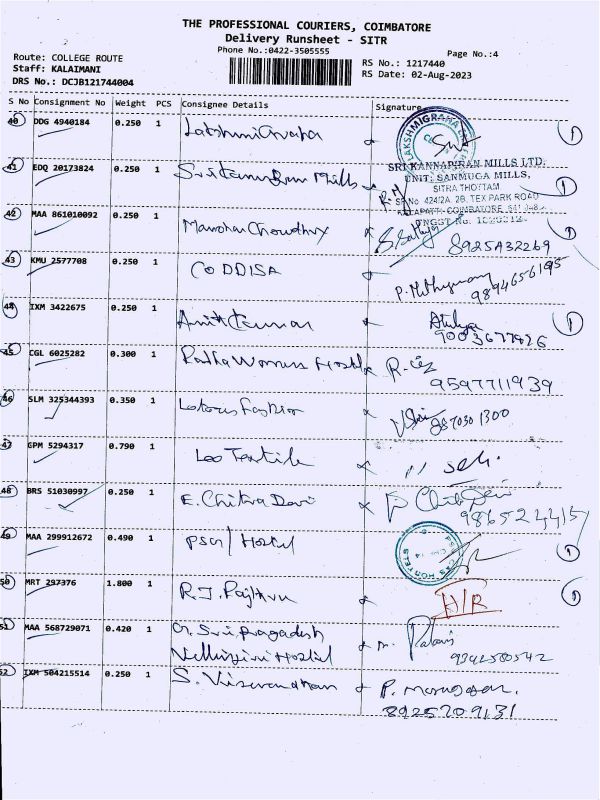 THE PROFESSIONAL COURIERS, COIMBATORE
Delivery Runsheet - SITR
Phone No.:0422-3505555
Page No.:4
Route: COLLEGE ROUTE
Staff: KALAIMANI
DRS No.: DCJB121744004
RS No.: 1217440
RS Date: 02-Aug-2023
S No Consignment No Weight PCS Consignee Details Signature
40 DDG 4940184 0.250 1 Lakshmigraha
41 EDQ 20173824 0.250 1
SRI KANNAPIRAN MILLS LTD.
UNIT: SANMUGA MILLS,
SITRA THOTTAM
TEX PARK ROAD
42 MAA 861010092 0.250 1 Manohar Choudhry
43 KMU 2577708 0.250 1 CODDISA
9894656195
44 IXM 3422675 0.250 1 Anitkumar
9003677426
45 CGL 6025282 0.300 1 Radha Womens Hostel
9597711939
46 SLM 325344393 0.350 1 Lotous Fashion
47 GPM 5294317 0.790 1 Leo Textile
48 BRS 51030997 0.250 1 E. Chitra Devi
49 MAA 299912672 0.490 1 PSG / Hostel
50 MRT 297376 1.800 1 R.J.
H/R
51 MAA 568729071 0.420 1 G. Sri pragadesh
Hostel
9342580542
52 IXM 504215514 0.250 1 S. Viswanathan P. Murugesan.
8925709131